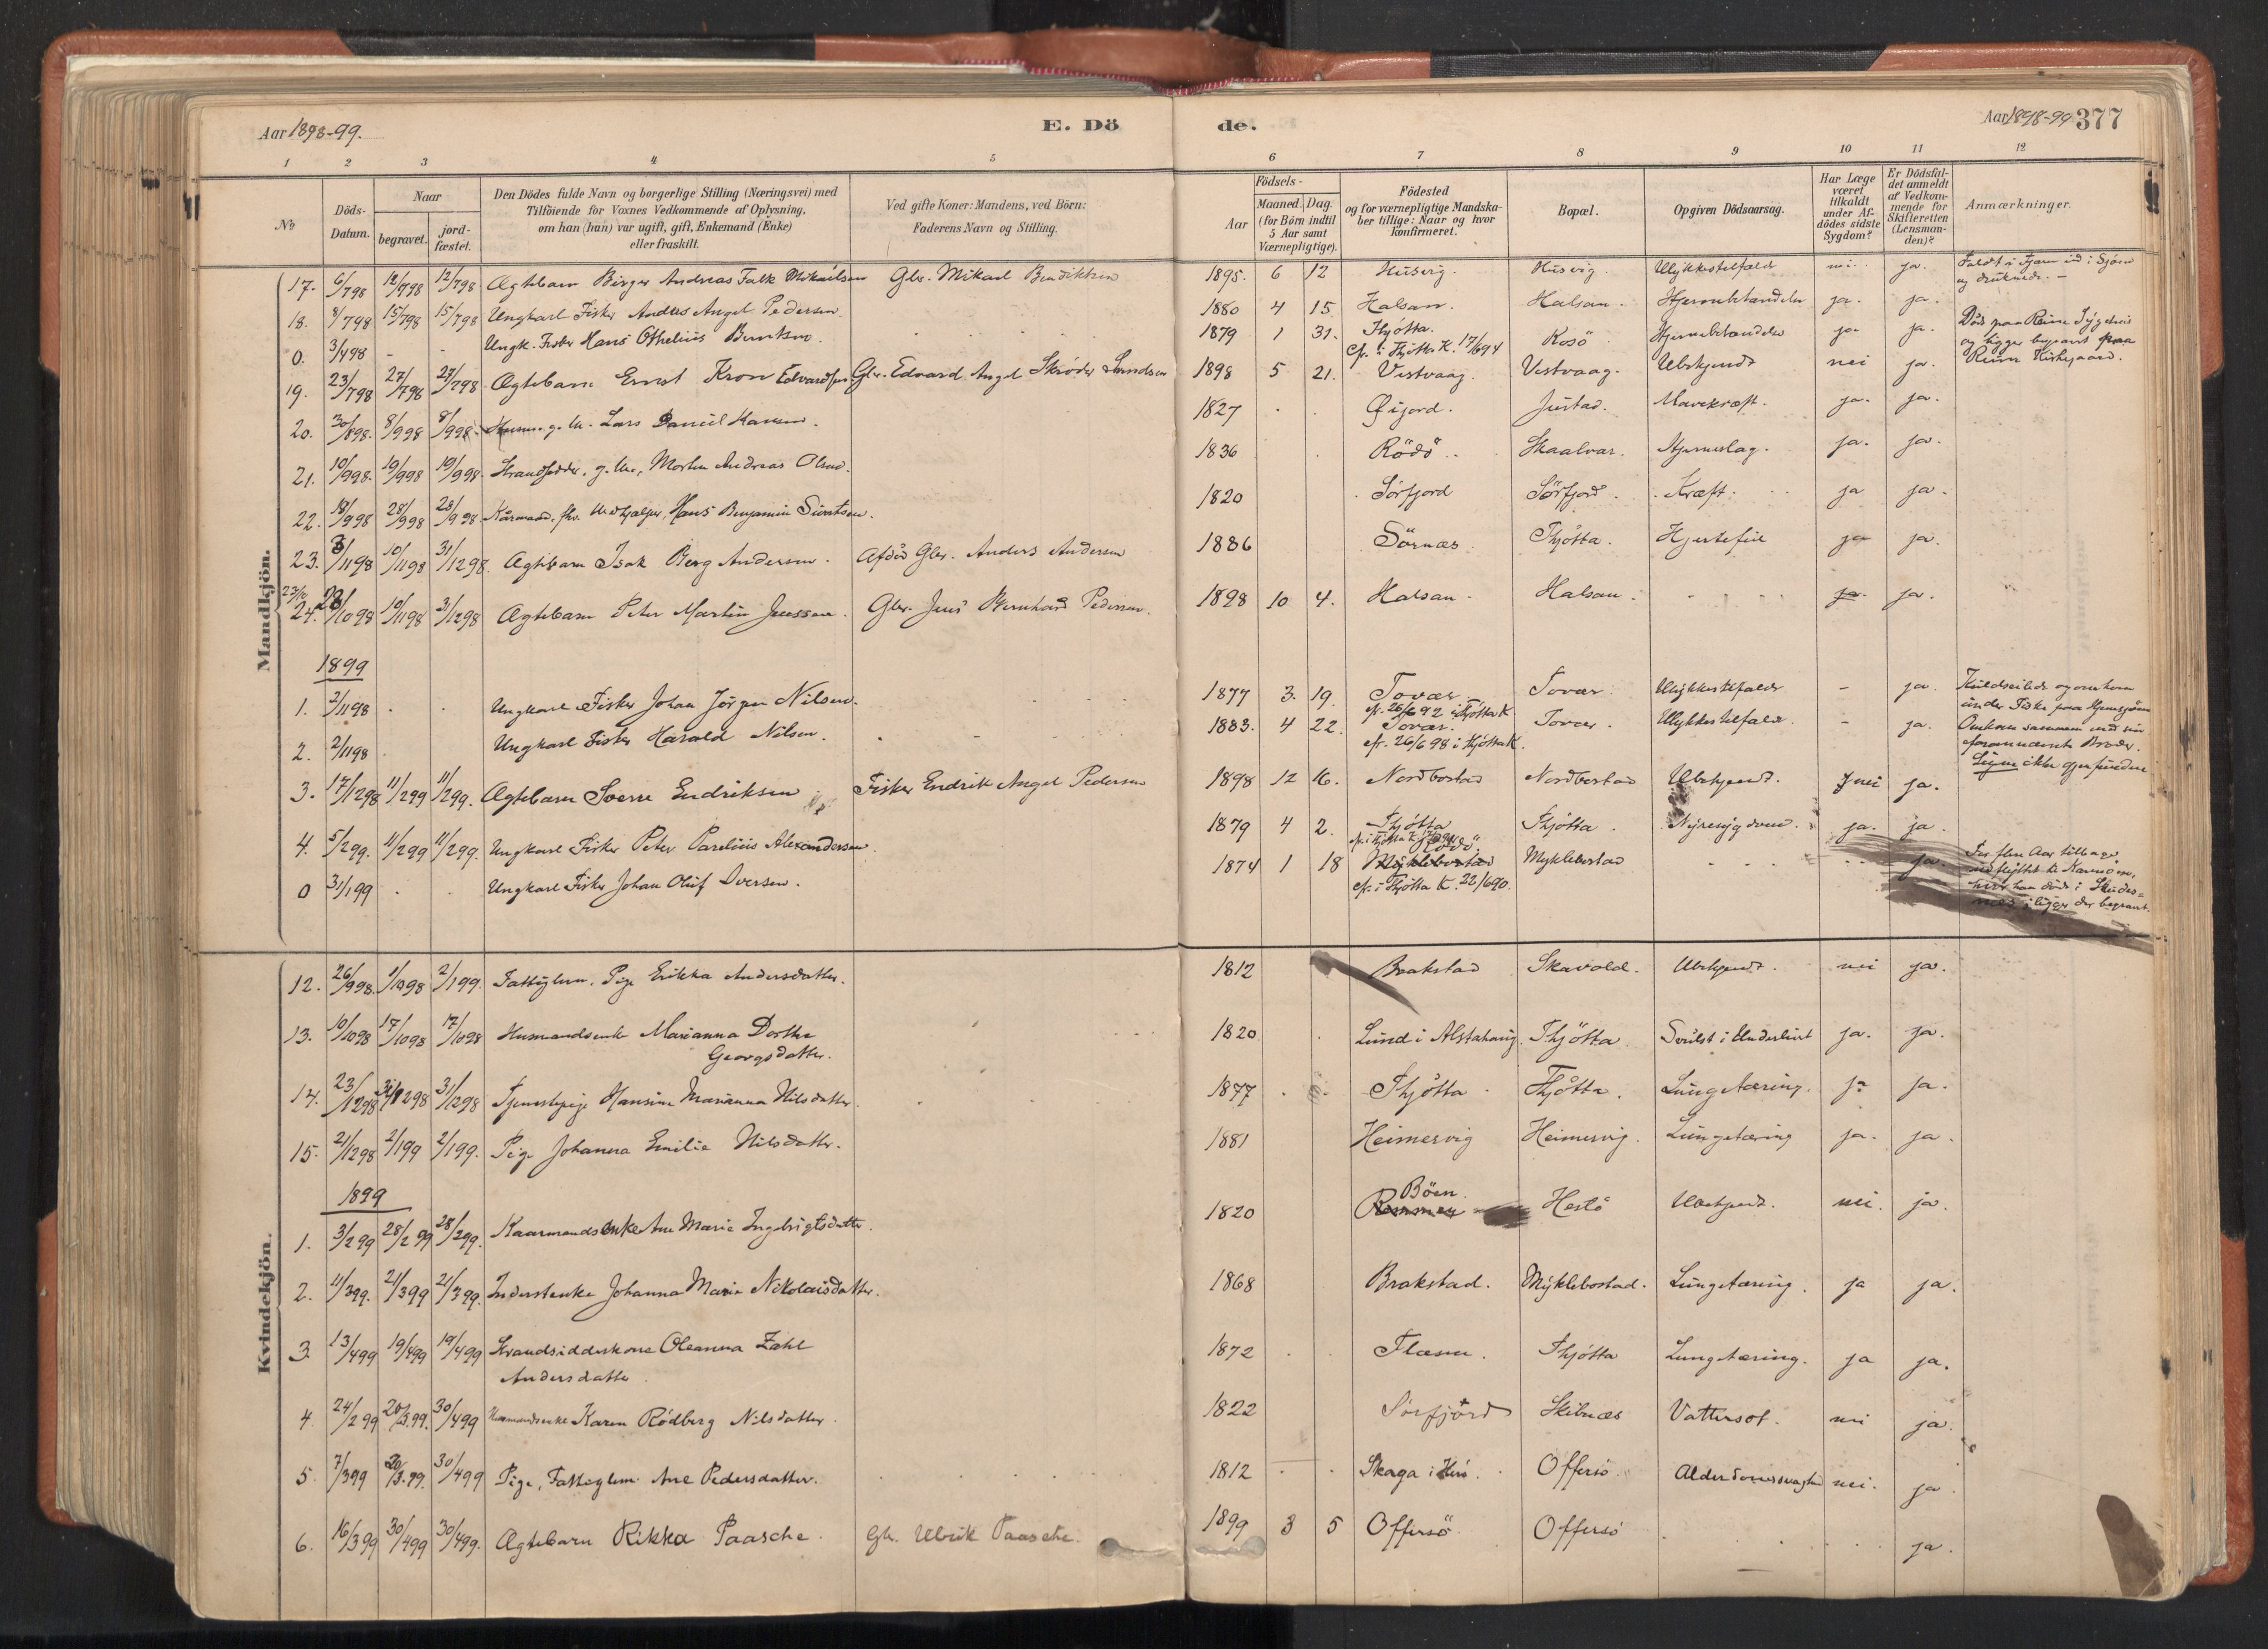 Aar 1898-99.
E. Dö
de.
Aar 1898-99 377
1 2 3 4 5 6 7 8 9 10 11 12
No
Döds-Datum.
Naar
begravet.
jord-fæstet.
Den Dödes fulde Navn og borgerlige Stilling (Næringsvei) med
Tilföiende for Voxnes Vedkommende af Oplysning,
om han (hun) var ugift, gift, Enkemand (Enke)
eller fraskilt.
Ved gifte Koner: Mandens, ved Börn:
Faderens Navn og Stilling.
Födsels-
Aar
Maaned. Dag.
(for Börn indtil
5 Aar samt
Værnepligtige).
Födested
og for værnepligtige Mandska-
ber tillige: Naar og hvor
konfirmeret.
Bopæl.
Opgiven Dödsaarsag.
Har Læge
været
tilkaldt
under Af-
dödes sidste
Sygdom?
Er Dödsfal-
det anmeldt
af Vedkom-
mende for
Skifteretten
(Lensman-
den)?
Anmærkninger.
Mandkjön.
17. 6/798 12/798 12/798 Ægtebarn Birger Andreas Falk Mikaelsen Gbr. Mikael Bendiktsen 1895. 6 12 Husvig. Husvig. Ulykkestilfælde nei ja. Faldt i Fjæren ud i Sjøen
og druknede. —
18. 8/798 15/798 15/798 Ungkarl Fisker Andreas Angel Pedersen. 1880 4 15. Halsan. Halsan. ja. ja.
0. 3/498 - - Ungk. Fisker Hans Othelius Berntsen. 1879 1 31. Thjøtta.
cfr. i Thjøtta K. 17/694 Rosö ja ja. Död paa Reine Sygehus
og ligger begravet paa
Reine Kirkegaard.
19. 23/798 27/798 27/798 Ægtebarn Ernst Kron Edvardsen Gbr. Edvard Angel Skrøder 1898 5 21. Vestvaag. Vestvaag. Ubekjendt nei ja.
20. 30/898. 8/998 8/998. Lars Daniel Hansen. 1827 Øijord. Justad. Mavekræft. ja. ja.
21. 10/998. 19/998 19/998. Strandsidder, g. M., Morten Andreas Olsen. 1836 Rödö. Skaalvar. Hjerneslag. ja. ja.
22. 18/998 28/998 28/998 Kårmand, fhv. Medhjælper, Hans Benjamin Sivertsen. 1820 Sörfjord Sörfjord. Kræft. ja ja.
23. 3/1198 10/1198 31/1298. Ægtebarn Isak Berg Andersen. Afdöd Gbr. Anders Andersen 1886 Sörnæs Thjøtta. Hjertefeil ja ja.
24. 23/1098 10/1198 31/1298 Ægtebarn Peter Martin Jenssen. Gbr. Jens Bernhard Pedersen. 1898 10 4. Halsan. Halsan. ja. ja.
1899
1. 2/1198 Ungkarl Fisker Johan Jörgen Nilsen. 1877 3. 19. Tovær.
cfr. 26/692 i Thjøtta K. Tovær Ulykkestilfælde - ja. Kuldseilede og omkom
under Fiske paa Hjemsjøen
2. 2/1198 Ungkarl Fisker Harald Nilsen. 1883. 4 22. Tovær.
cfr. 26/698 i Thjøtta K. Tovær. Ulykkestilfælde. - ja. Omkom sammen med sin
foran nævnte Broder.
Ligene ikke gjenfundne
3. 17/1298 11/299 11/299. Ægtebarn Sverre Endriksen Fisker Endrik Angel Pedersen 1898 12 16. Nordbostad Nordbostad Ubekjendt. nei ja.
4. 5/299. 11/299 11/299. Ungkarl Fisker Peter Parelius Alexandersen. 1879 4 2. Thjøtta Thjøtta. Nyresygdom. ja. ja.
0 31/199 Ungkarl Fisker Johan Oluf Iversen. 1874 1 18 Rödö.
Myklebostad
cfr. i Thjøtta K. 22/690. Myklebostad ja. For flere Aar tilbage
udflyttet til Karmöen,
hvor han döde i Skudes-
næs, ligger der begravet.
Kvindekjön.
12. 26/998. 1/1098 2/199. Fattiglem. Pige Erikka Andersdatter. 1812 Brakstad Skavold. Ubekjendt. nei ja.
13. 10/1098 17/1098 17/1098 Husmandsenke Marianna Dorthe
Georgsdatter. 1820 Lund i Alstahaug. Thjøtta. Svulst i Underlivet ja. ja.
14. 23/1298 31/1298 31/1298 Tjenestepige Hansine Marianna Nilsdatter. 1877 Thjøtta Thjøtta. Lungetæring. ja ja.
15. 21/1298 2/199 2/199. Pige Johanna Emilie Nilsdatter. 1881 Heimesvig Heimesvig. Lungetæring ja. ja.
1899
1. 3/299 28/299 28/299. Kaarmandsenke Ane Marie Ingebrigtsdatter. 1820 Böen. Hestö Ubekjendt. nei. ja.
2. 11/399. 21/399 21/399. Inderstenke Johanna Marie Nikolaisdatter. 1868 Brakstad. Myklebostad. Lungetæring. ja ja.
3. 13/499 19/499 19/499 Strandsidderkone Oleanna Zahl
Andersdatter 1872 Flæsen. Thjøtta Lungetæring. ja ja.
4. 24/299 20/3.99. 30/499 Husmandsenke Karen Rödberg Nilsdatter. 1822 Sörfjord Skibnæs Vattersot. nei ja.
5. 7/399 20/3.99. 30/499 Pige, Fattiglem. Ane Pedersdatter. 1812 Skaga i Herö. Offersö. Alderdomssvaghed nei. ja.
6. 16/399 30/499 30/499. Ægtebarn Rikka Paasche. Gb. Ulrik Paasche. 1899 3 5 Offersö Offersö ja.